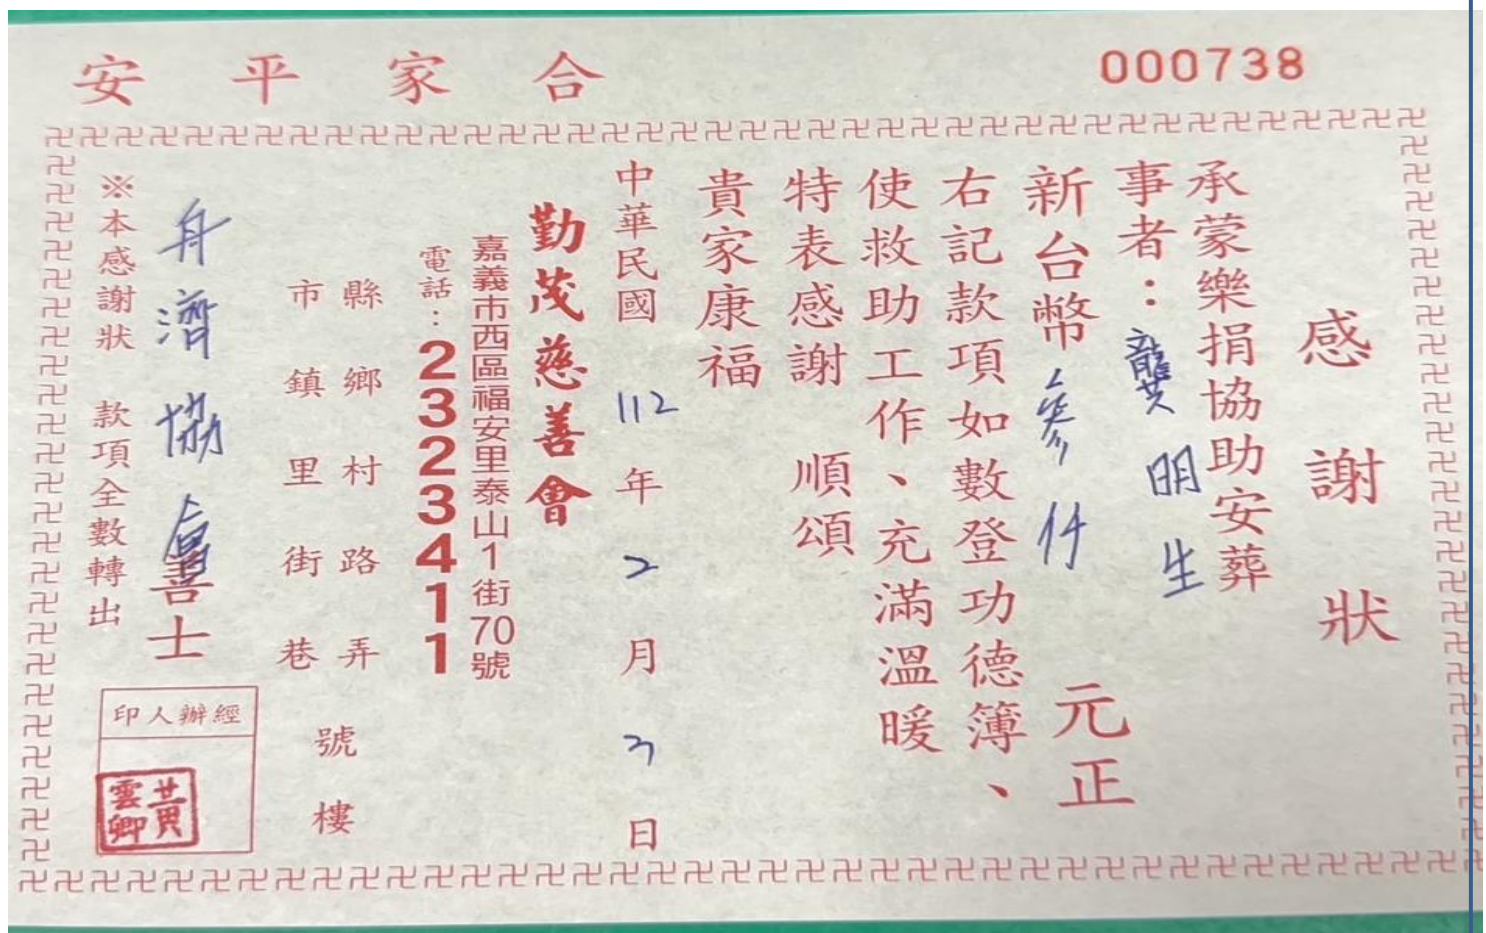 合家平安
000738
感謝狀
承蒙樂捐協助安葬
事者：龔明生
新台幣參仟元正
右記款項如數登功德簿、
使救助工作、充滿溫暖
特表感謝 順頌
貴家康福
中華民國112年2月3日
勤茂慈善會
嘉義市西區福安里泰山1街70號
電話：2323411
縣鄉村路弄
市鎮里街巷
號樓
舟濟協會善士
※本感謝狀 款項全數轉出
經辦人印
黃雲卿